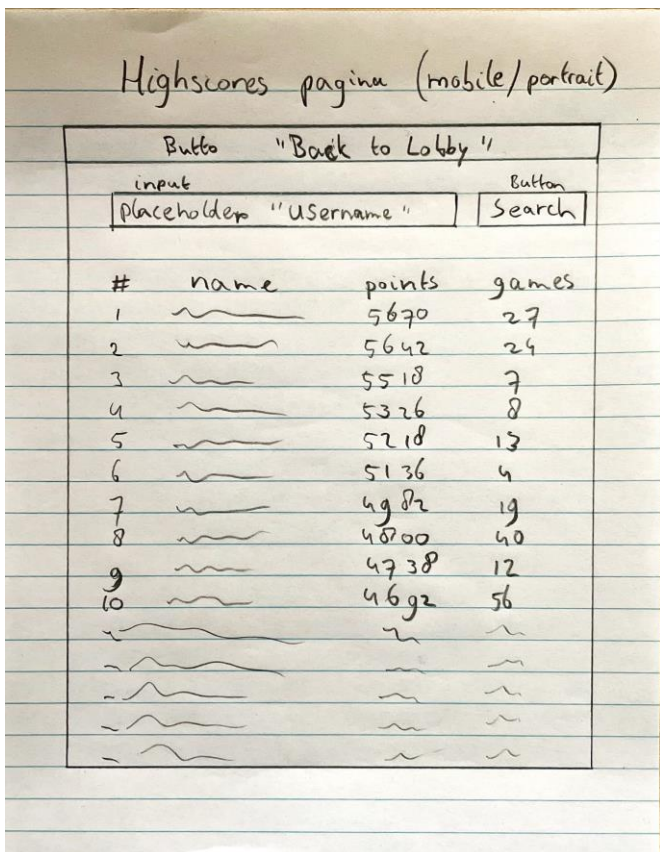 Highscores pagina (mobile/portrait)
Butto "Back to Lobby"
input Button
placeholder "Username" Search
# name points games
1 5670 27
2 5642 24
3 5518 7
4 5326 8
5 5218 13
6 5136 4
7 4982 19
8 4800 40
9 4738 12
10 4692 56